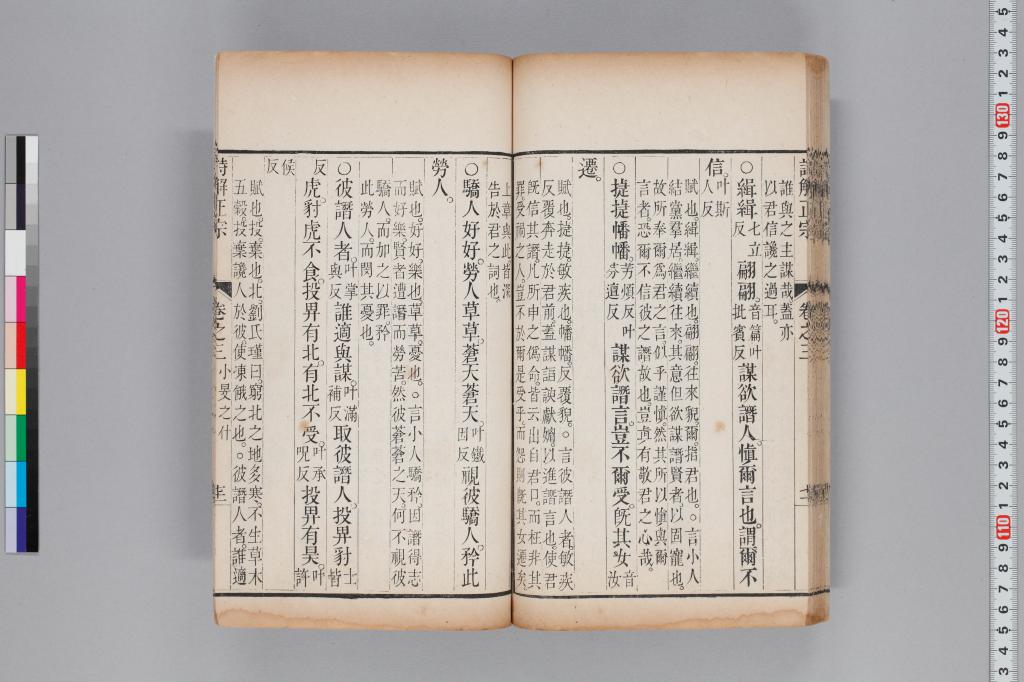 誰與之主謀哉蓋亦
以君信讒之過耳。
○緝緝七立反翩翩。音篇叶批賓反謀欲譖人。愼爾言也。謂爾不
信。叶斯人反
賦也。緝緝繼續也。翩翩往來貌。爾指君也。○言小人
結黨羣居繼續往來。其意但欲謀譖賢者以固寵也。
故所奉爾爲君之言似乎謹愼。然其所以愼與爾
言者恐爾不信彼之譖故也。豈眞有敬君之心哉。
○捷捷幡幡。芳煩反叶芬邅反謀欲譖言。豈不爾受。旣其女音汝
遷。
賦也。捷捷敏疾也。幡幡反覆貌。○言彼譖人者敏疾
反覆奔走於君前。蓋謀語諛獻媚以進譖言也。使君
旣信其譖。凡所申之僞命。皆云出自君口。而枉非其
罪。受禍之人豈不於爾是受乎。而怨則旣其女遷矣。
上章與此皆深
告於君之詞也。
○驕人好好。勞人草草。蒼天蒼天。叶鐵因反視彼驕人。矜此
勞人。
賦也。好好樂也。草草憂也。○言小人驕矜。因譖得志
而好樂。賢者遭譖而勞苦。然彼蒼蒼之天。何不視彼
驕人。而加之以罪。矜
此勞人。而閔其憂也。
○彼譖人者。叶掌與反誰適與謀。叶滿補反取彼譖人。投畀豺士皆
反虎。豺虎不食。投畀有北。有北不受。叶承呪反投畀有昊。叶許
候反
賦也。投。棄也。北。劉氏瑾曰。窮北之地多寒。不生草木
五穀。投棄讒人於彼。使凍餓之也。○彼譖人者。誰適
詩解正宗
卷之三
小旻之什